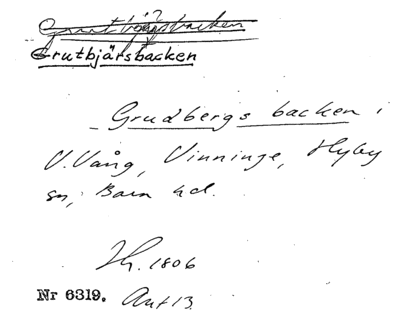 Grutbjärsbacken
Grutbjärsbacken
Grudbergs backen i
V. Vång, Vinninge, Hyby
sn, Bara hd.
Th. 1806
Nr 6319. Ant 13